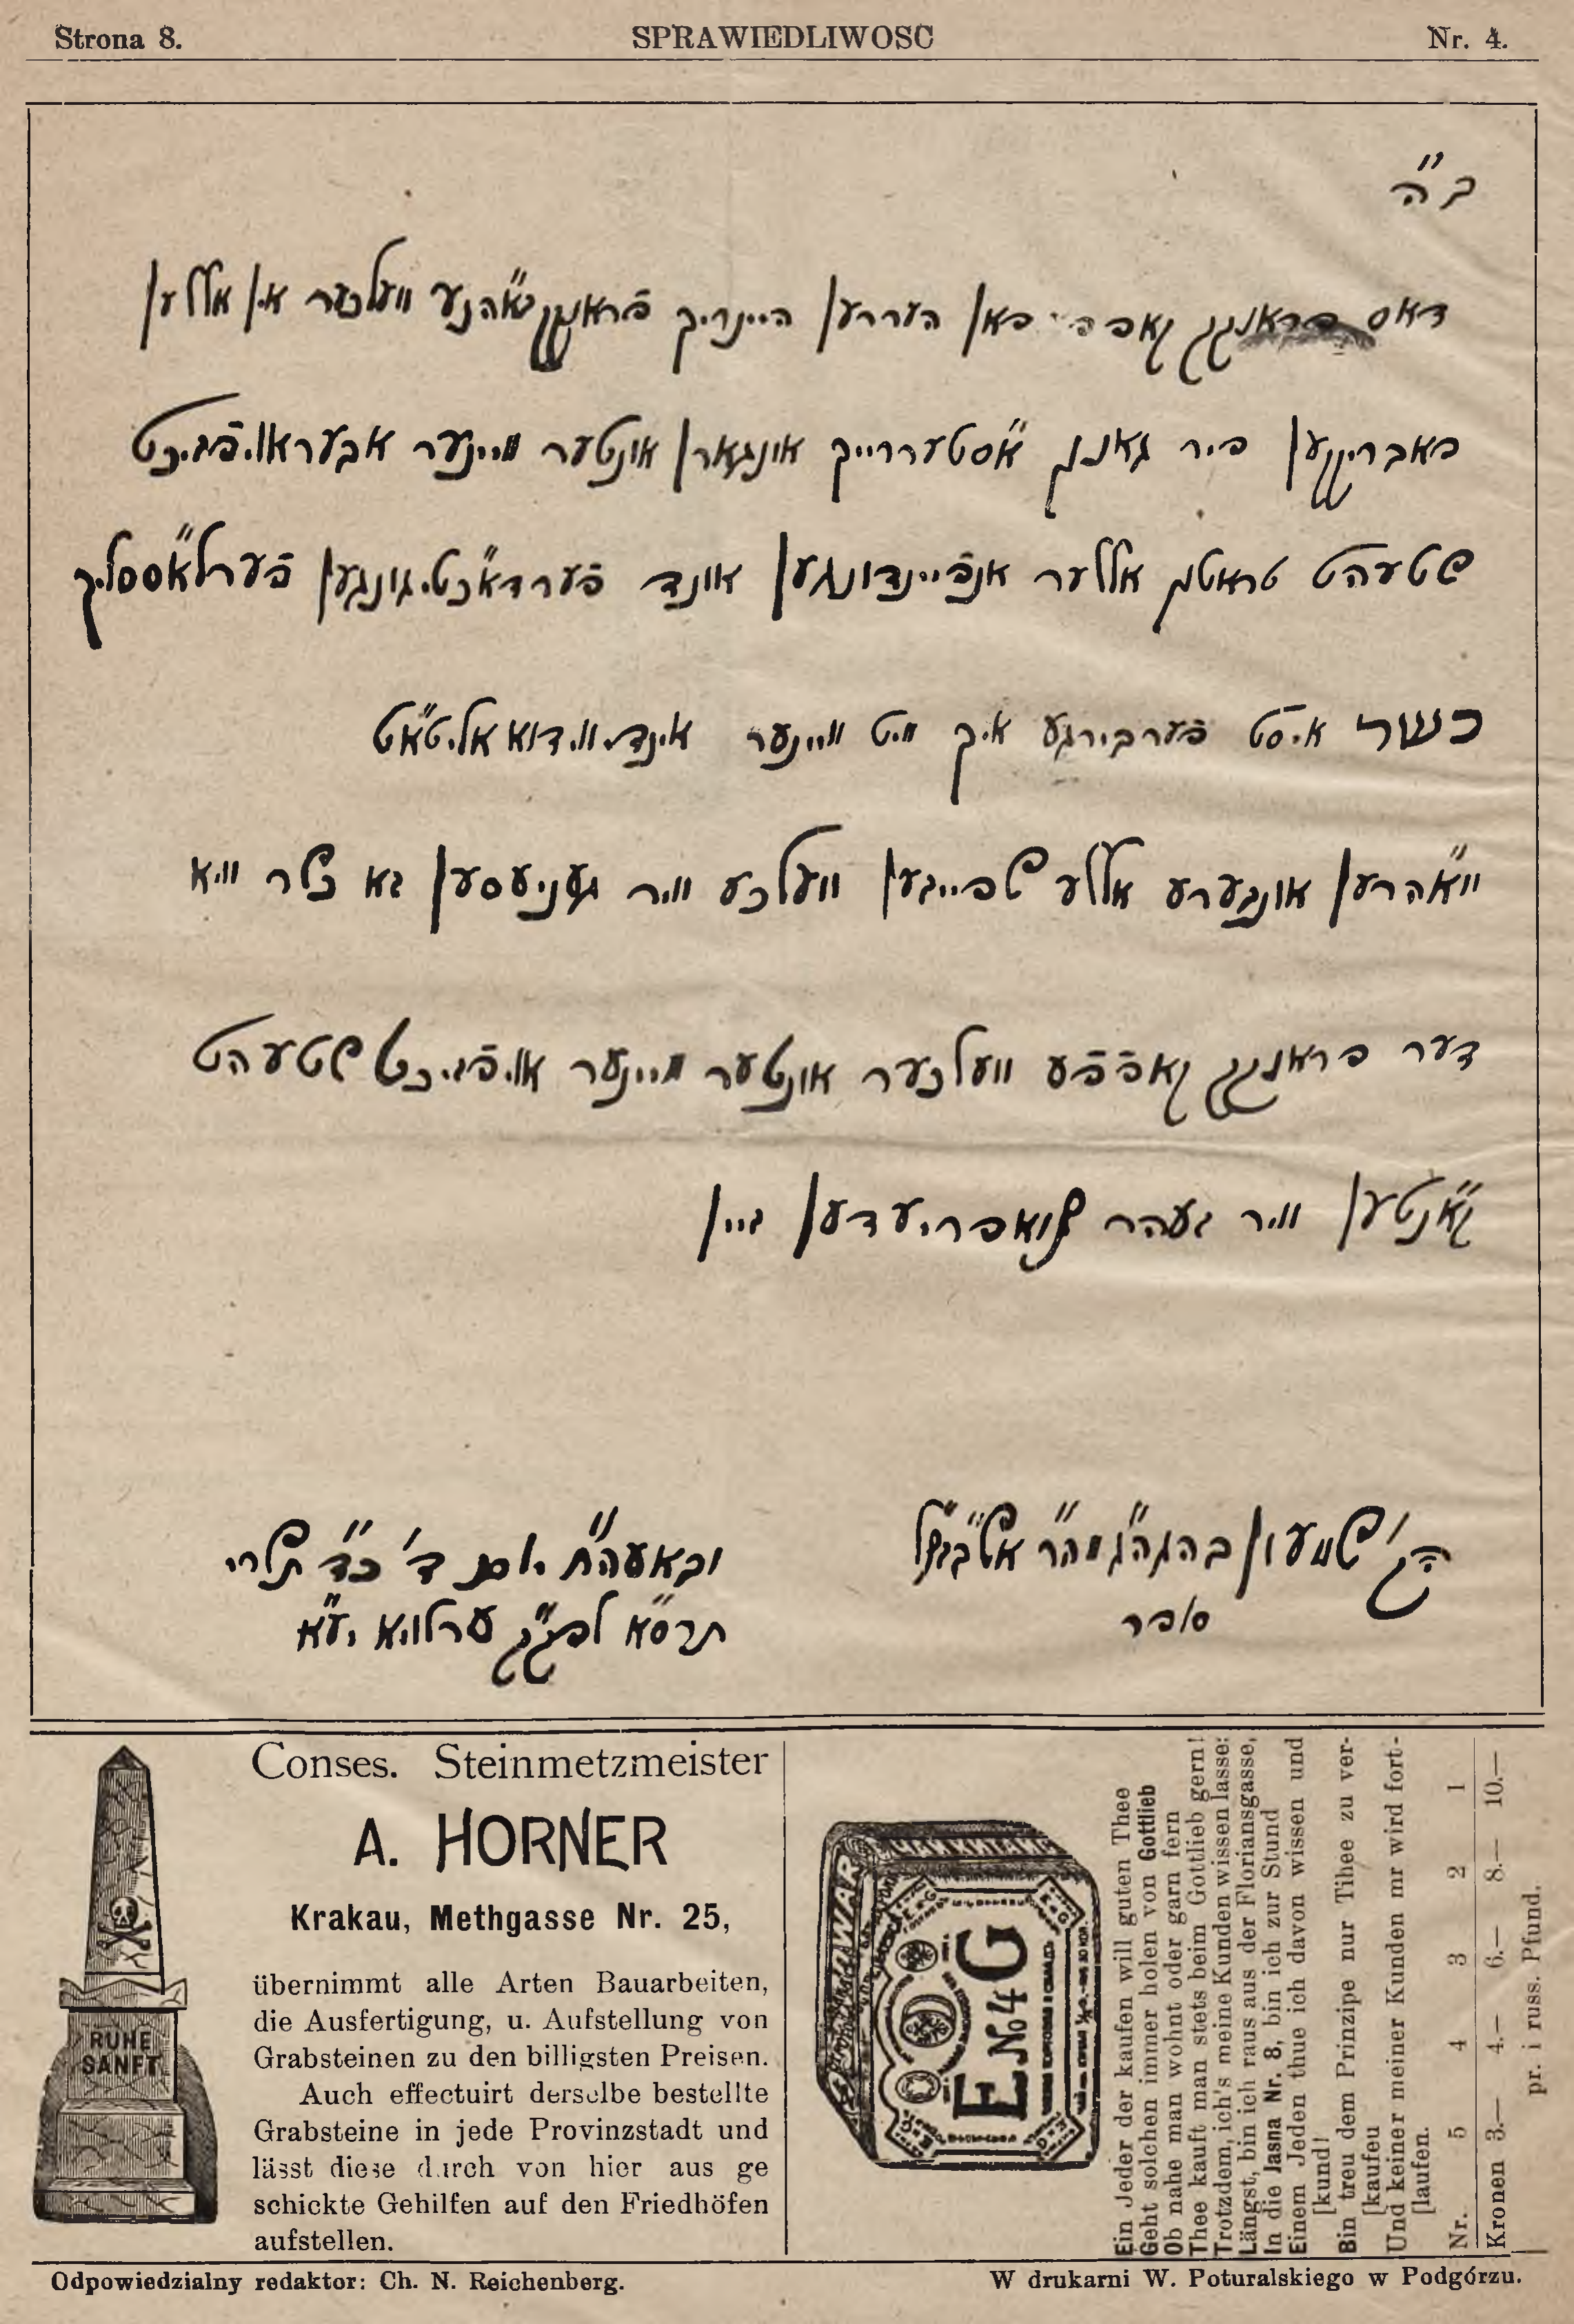 Strona 8. SPRAWIEDLIWOSC Nr. 4.
ב"ה
דאס פראנקק קאפפיי פאן העררען היינריך פֿראנקק זא"הנע וועלכער אין אללען
פאבריקקען פיר גאנץ א"סטעררייך אונגארן אונטער מיינער אבעראויפֿזיכט
שטעהט טראטץ אללער אנפֿיינדונגען אונד פֿערדא"כטיגונגען פֿערלא"ססליך
כשר איסט פֿערבירגע איך מיט מיינער אינדיווידואאליטא"ט
ווא"הרען אונזערע אללע שפייזען וועלכע וויר געניעסען זא כשר וויא
דער פראנקק קאפֿפֿע וועלכער אונטער מיינער אויפֿזיכט שטעהט
קא"נטען וויר זעהר צואפריעדען זיין
הק' שמעון בהגה"ג מהר"ר
סופר
ובאעה"ח יום ד' כ"ד תשרי
תרס"א לפ"ק ק ערלויא יע"א
RUHE
SANFT
Conses. Steinmetzmeister
A. HORNER
Krakau, Methgasse Nr. 25,
übernimmt alle Arten Bauarbeiten,
die Ausfertigung, u. Aufstellung von
Grabsteinen zu den billigsten Preisen.
Auch effectuirt derselbe bestellte
Grabsteine in jede Provinzstadt und
lässt diese durch von hier aus ge
schickte Gehilfen auf den Friedhöfen
aufstellen.
E № 4 G
Ein Jeder der kaufen will guten Thee
Geht solchen immer holen von Gottlieb
Ob nahe man wohnt oder garn fern
Thee kauft man stets beim Gottlieb gern!
Trotzdem, ich's meine Kunden wissen lasse:
Längst, bin ich raus aus der Floriansgasse,
In die Jasna Nr. 8, bin ich zur Stund
Einem Jeden thue ich davon wissen und
[kund!
Bin treu dem Prinzipe nur Tihee zu ver-
[kaufeu
Und keiner meiner Kunden mr wird fort-
[laufen.
Nr. 5 4 3 2 1
Kronen 3.— 4.— 6.— 8.— 10.—
pr. i russ. Pfund.
Odpowiedzialny redaktor: Ch. N. Reichenberg. W drukarni W. Poturalskiego w Podgórzu.